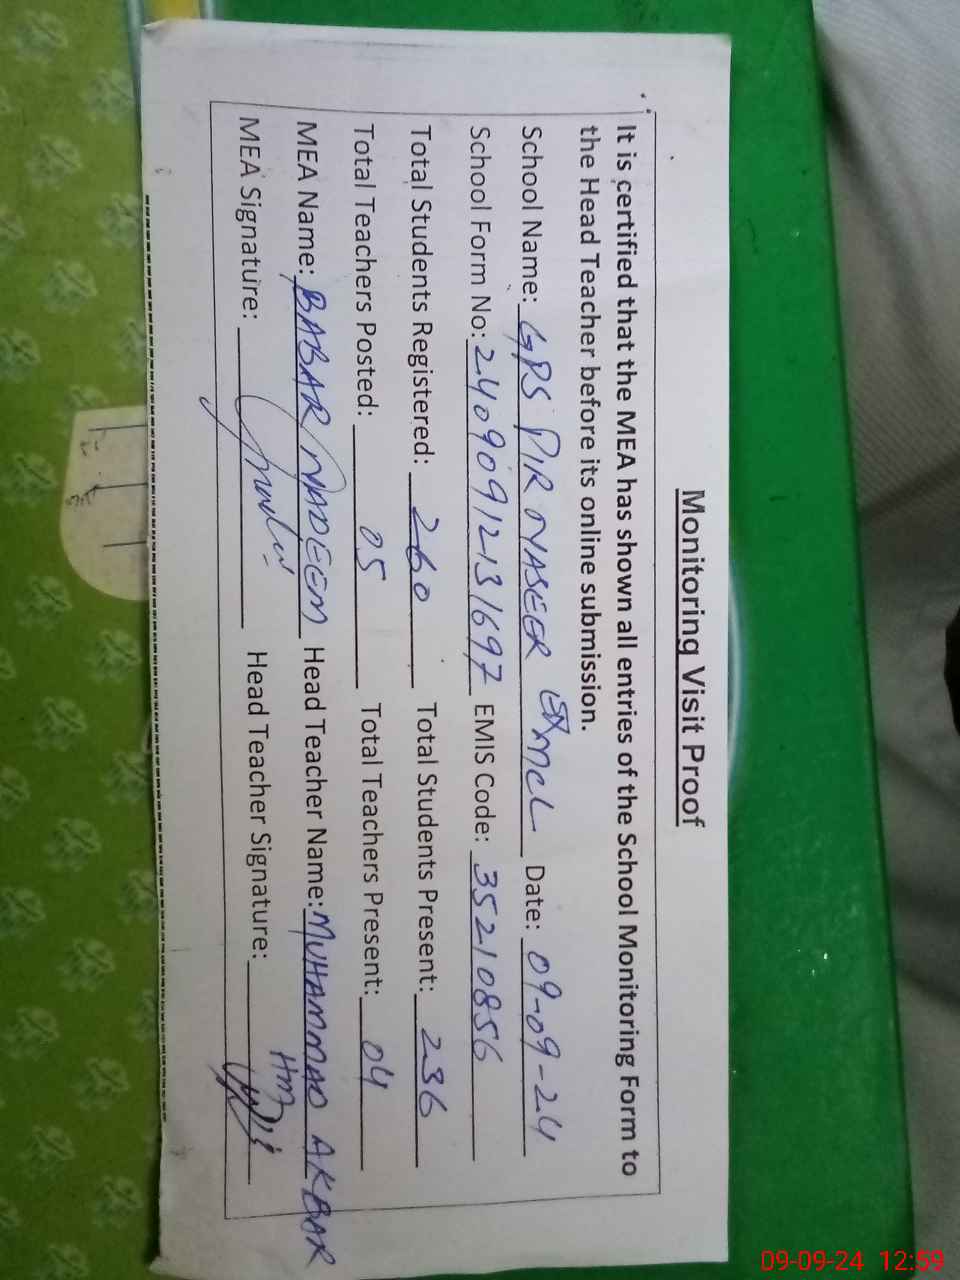 Monitoring Visit Proof
It is certified that the MEA has shown all entries of the School Monitoring Form to
the Head Teacher before its online submission.
School Name: GPS PIR NASEER EX MCL Date: 09-09-24
School Form No: 24090912131697 EMIS Code: 35210856
Total Students Registered: 260 Total Students Present: 236
Total Teachers Posted: 05 Total Teachers Present: 04
MEA Name: BABAR NADEEM Head Teacher Name: MUHAMMAD AKBAR
MEA Signature: Head Teacher Signature:
09-09-24 12:59